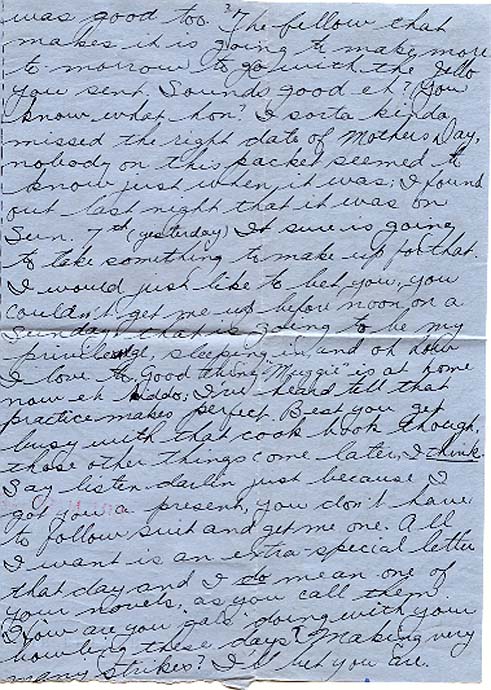 was good too. The fellow that
makes it is going to make more
to morrow to go with the Jello
you sent. Sounds good eh? You
know what hon? I sorta kinda
missed the right date of Mothers Day,
nobody on this packet seemed to
know just when it was; I found
out last night that it was on
Sun. 7th (yesterday) It sure is going
to take something to make up for that.
I would just like to bet you, you
couldn't get me up before noon on a
Sunday that is going to be my
priviledge, sleeping in, and oh how
I love it. Good thing "Muggie" is at home
now eh kiddo; I've heard tell that
practice makes perfect. Best you get
busy with that cook book though,
those other things come later, I think.
Say listen darlin just because I
got you a present, you don't have
to follow suit and get me one. All
I want is an extra-special letter
that day and I do mean one of
your novels, as you call them.
How are you gals doing with your
bowling these days? Making very
many strikes? I'll bet you are.